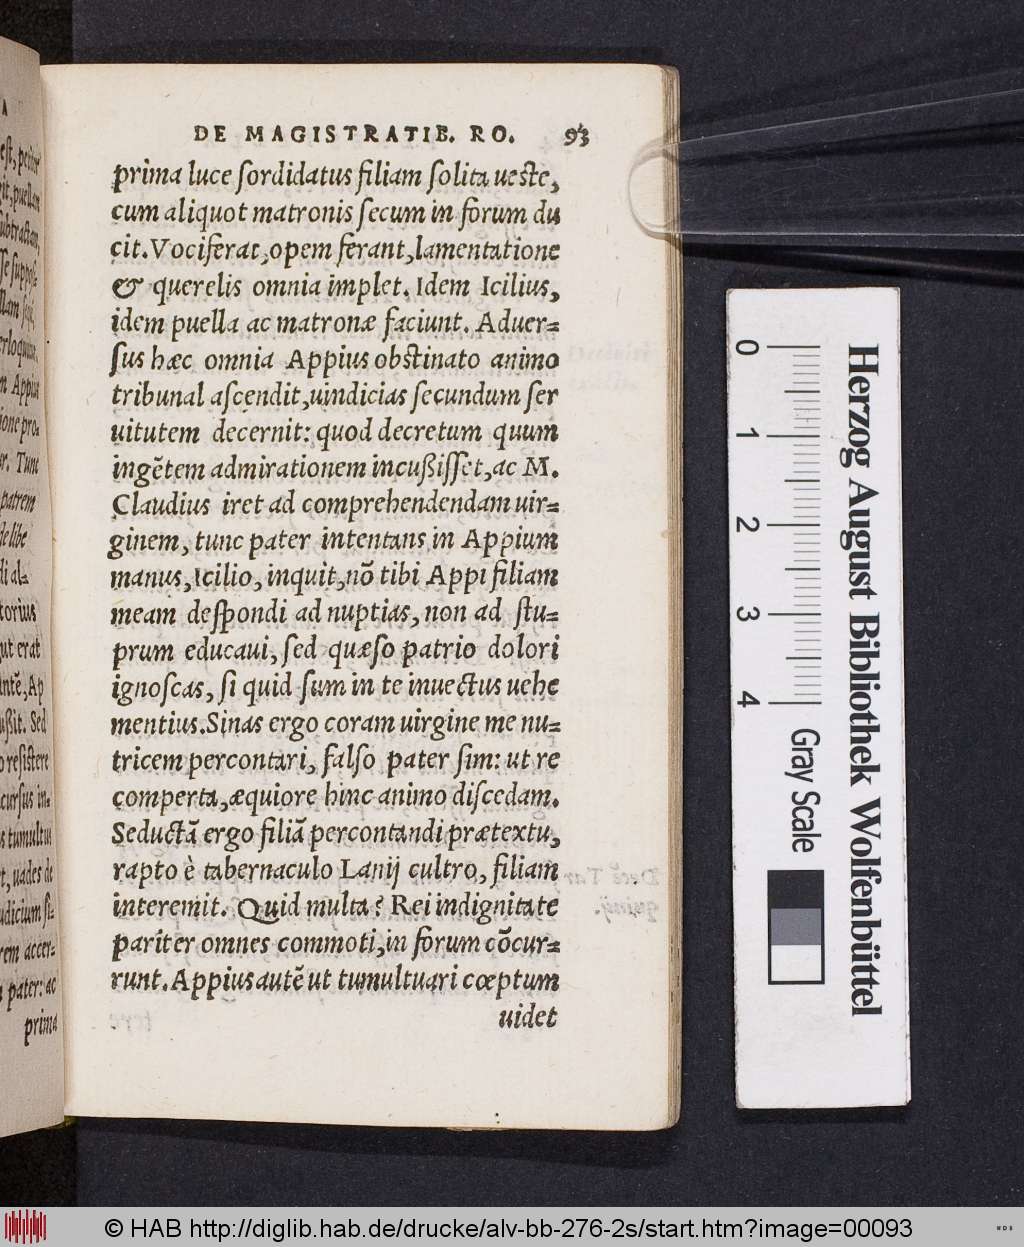 DE MAGISTRATIB. RO. 93
prima luce sordidatus filiam solita ueste,
cum aliquot matronis secum in forum du
cit. Vociferat, opem ferant, lamentatione
& querelis omnia implet. Idem Icilius,
idem puella ac matronæ faciunt. Aduer=
sus hæc omnia Appius obstinato animo
tribunal ascendit, uindicias secundum ser
uitutem decernit: quod decretum quum
ingẽtem admirationem incußisset, ac M.
Claudius iret ad comprehendendam uir=
ginem, tunc pater intentans in Appium
manus, Icilio, inquit, nõ tibi Appi filiam
meam despondi ad nuptias, non ad stu=
prum educaui, sed quæso patrio dolori
ignoscas, si quid sum in te inuectus uehe
mentius. Sinas ergo coram uirgine me nu=
tricem percontari, falso pater sim: ut re
comperta, æquiore hinc animo discedam.
Seductã ergo filiã percontandi prætextu,
rapto è tabernaculo Lanij cultro, filiam
interemit. Quid multa? Rei indignitate
pariter omnes commoti, in forum cõcur=
runt. Appius autẽ ut tumultuari cœptum
uidet
A
ßit. Sed
o resistere
s tumultus
t, uades de
udicium si-
rem accer-
pater: ac
prima
0 1 2 3 4
Gray Scale
Herzog August Bibliothek Wolfenbüttel
© HAB http://diglib.hab.de/drucke/alv-bb-276-2s/start.htm?image=00093
WDB